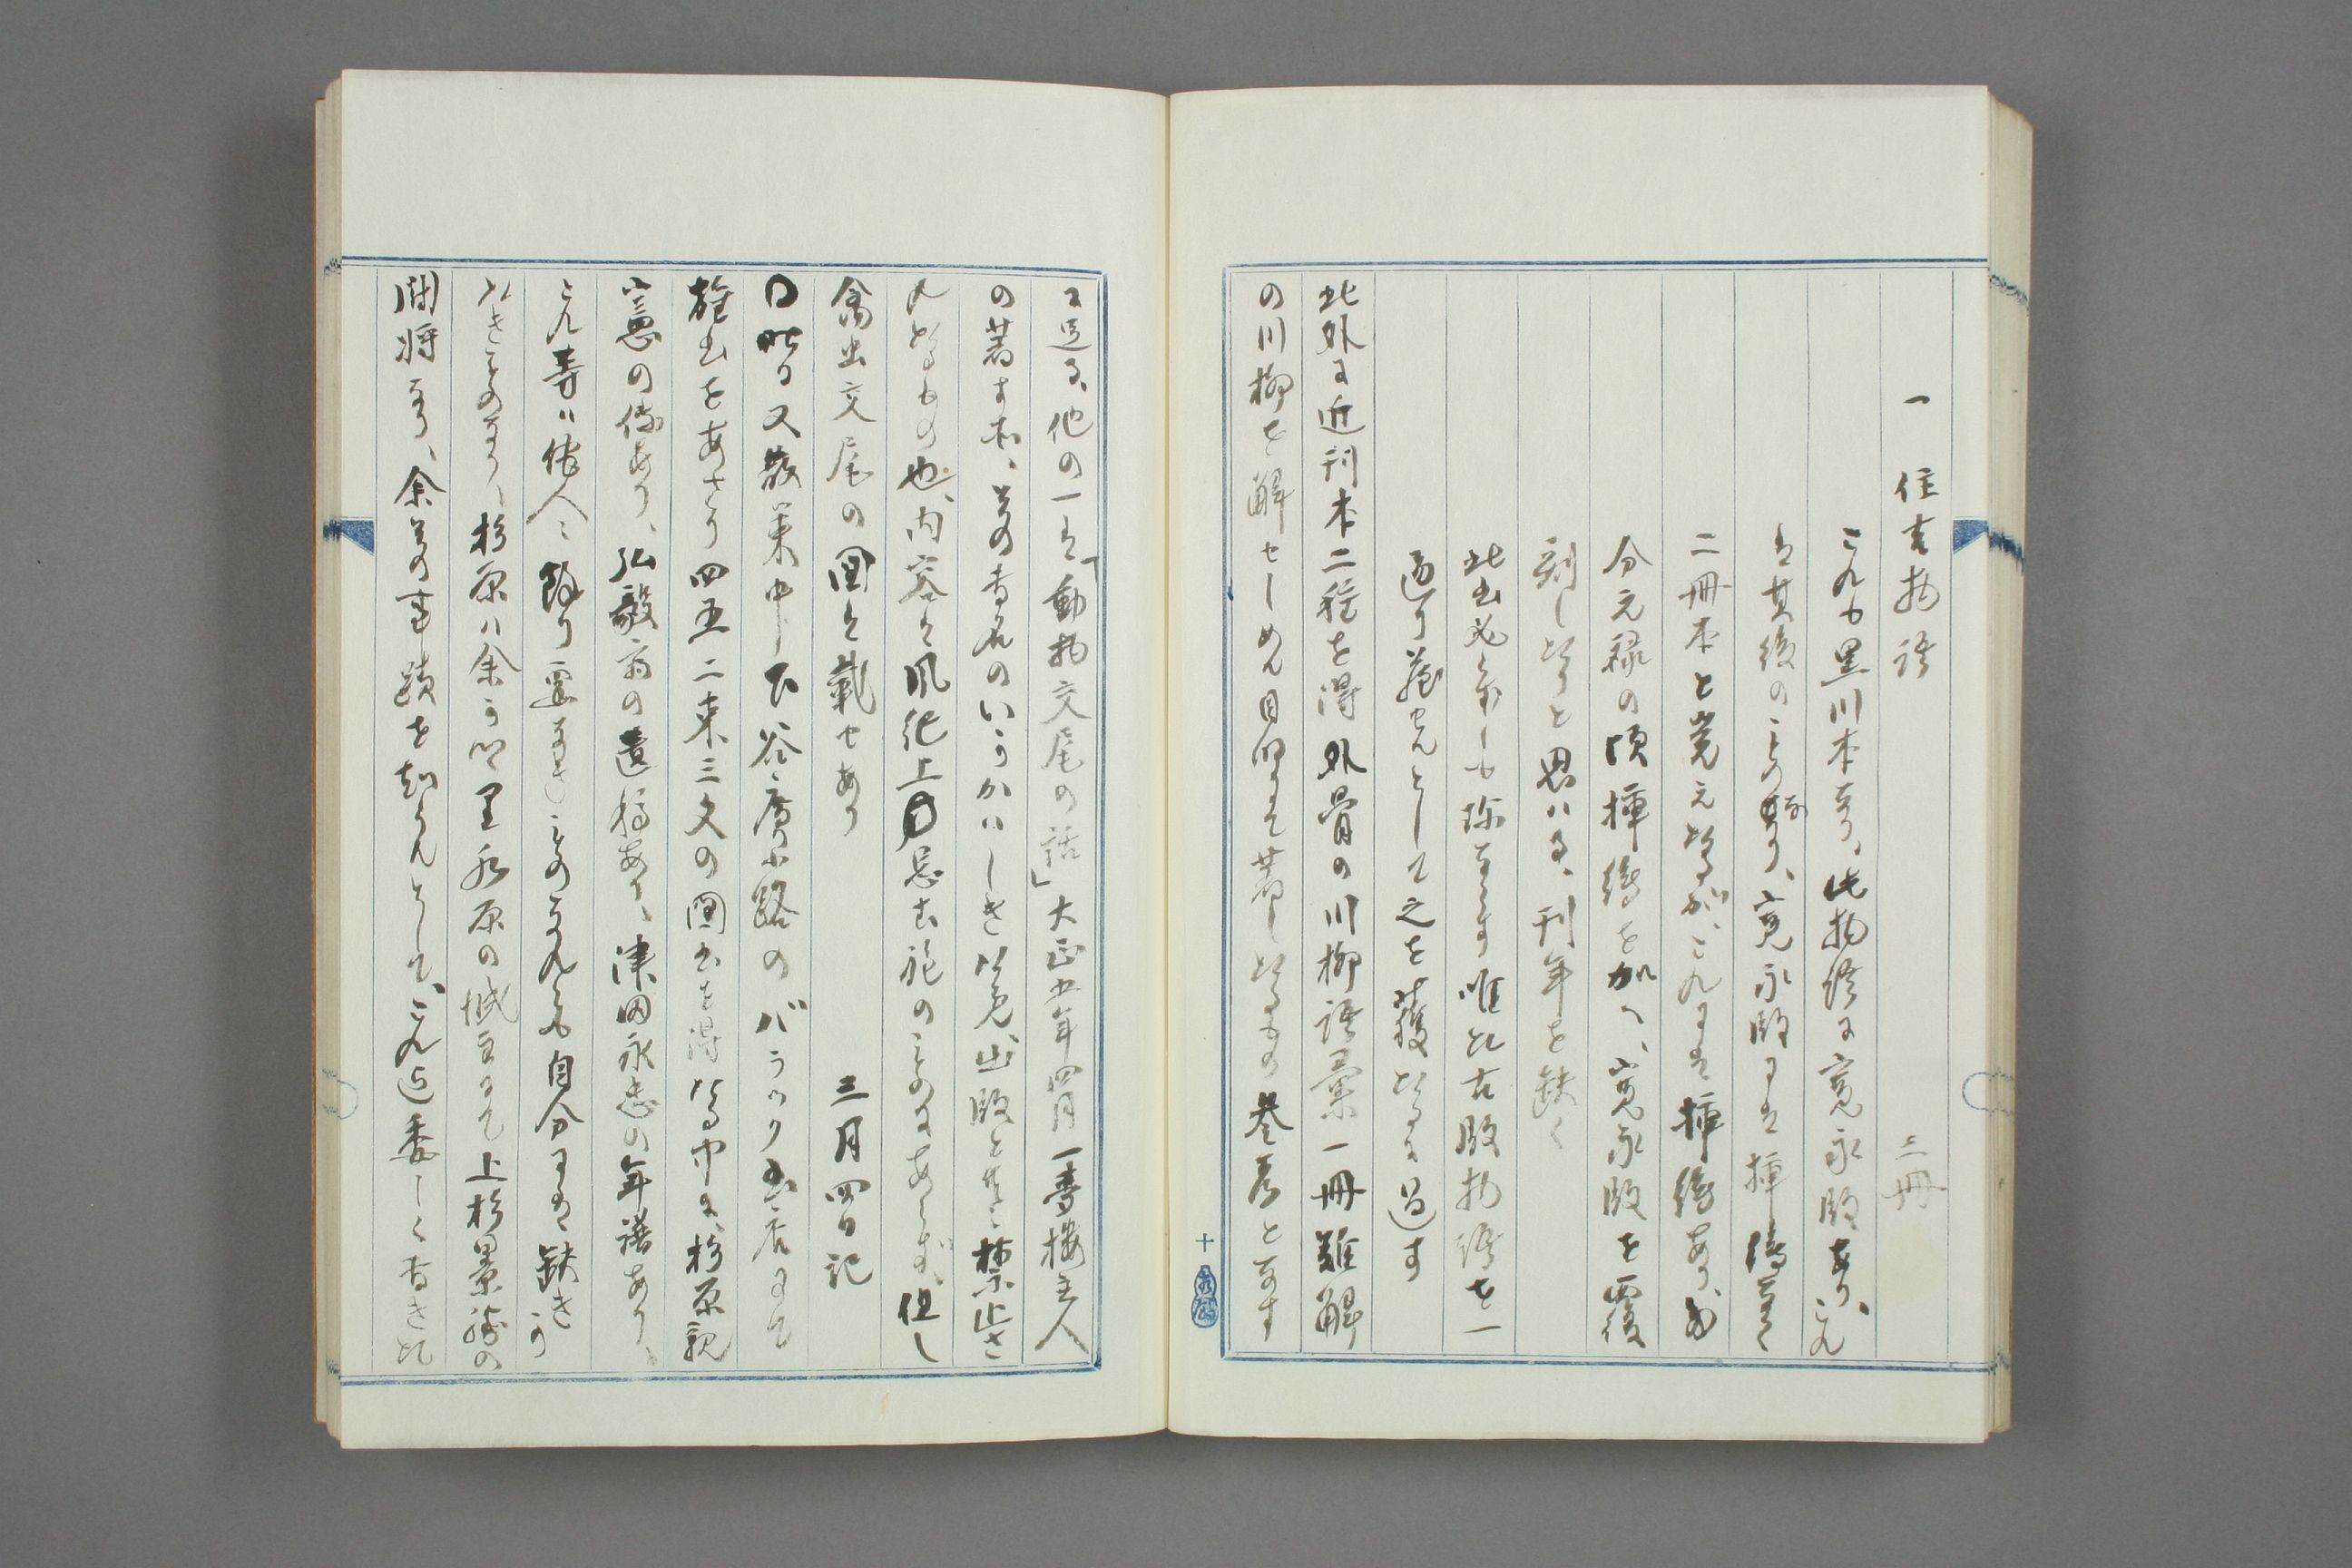 一 住吉物語 三冊
これも黒川本なり、此物語に寛永版あり、これ
は其後のもの なり、寛永版には挿絵なく
二冊本と覚えたるが、これには挿絵あり、
分元禄の頃挿絵を加へ、寛永版を覆
刻したりと思はる、刊年を欠く
此書必ずしも珍ならず唯此古版物語を一
通り蔵せんとして之を獲たるに過す
此外に近刊本二種を得外骨の川柳語彙一冊難解
の川柳を解せしめん目的にて著したるもの参考となす
に足る、他の一は「動物交尾の話」大正五年四月一夢楼主人
の著す所、其の書名のいかがはしき以為、出版と共に禁止さ
れたるもの也、内容は風紀上 忌む程のものにあらず、但し
禽虫交尾の図を載せあり
三月四日記
〇昨日又散策中下谷広小路のバラック書店にて
雑書をあさり四五二束三文の図書を得たる中に、杉原親
憲の伝あり、弘毅斎の遺稿あり、津田永忠の年譜あり、
これ等は他人に取り要なきものならんも自分には欠き
がたきものなり、杉原は余が郷里水原の城主にて上杉景勝の
闘将なり、余其の事蹟を知らんとして、これ迄委しく書きた